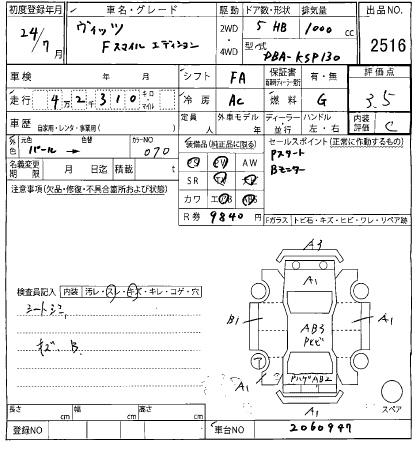 初度登録年月 車名・グレード 駆動 ドア数・形状 排気量 出品NO.
24/7月 ヴィッツ 2WD・4WD 5 HB 1000cc 2516
Fスマイル エディション 型式 DBA-KSP130
車検 年 月 シフト FA 保証書 有・無 評価点
走行 42310 キロ・マイル 冷房 AC 燃料 G 3.5
車歴 自家用・レンタ・事業用( ) 定員 人 外車モデル 年 ディーラー・並行 ハンドル 左・右 内装評価 C
外色 元色 パール → 色替 カラーNO 070 装備品(純正品に限る) セールスポイント(正常に作動するもの)
AW Pスタート
名義変更期限 月 日迄 積載 t SR Bモニター
カワ
注意事項(欠品・修復・不具合箇所および状態) R券 9840円 Fガラス トビ石・キズ・ヒビ・ワレ・リペア跡
A3
A1
検査員記入 内装 汚レ・スレ・キズ・キレ・コゲ・穴
シートシミ B1 A1
AB3
キズ、B.
AB2
A1 A1 スペア
長さ cm 幅 cm 高さ cm
登録NO 車台NO 2060947